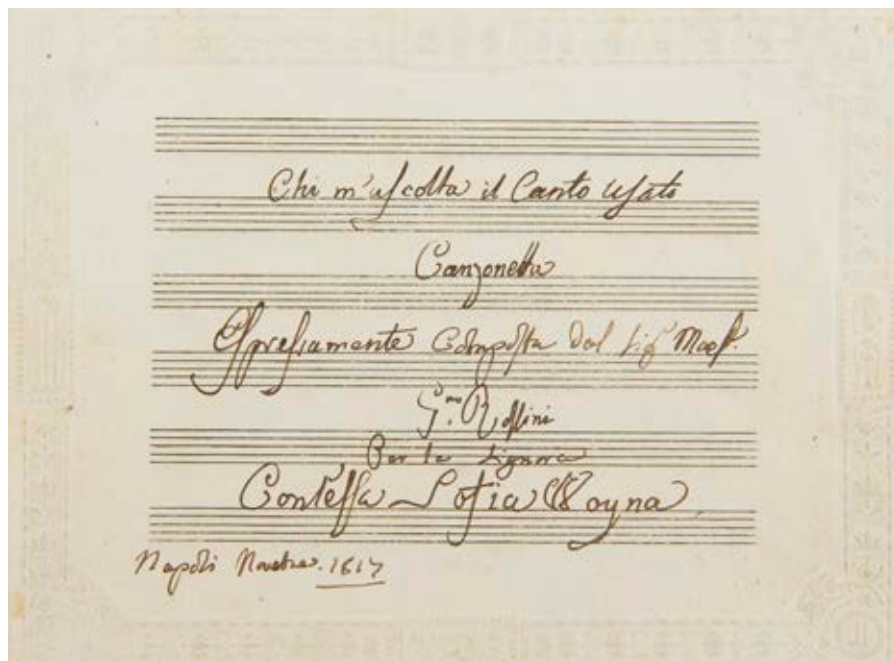 Chi m'ascolta il Canto usato
Canzonetta
Espressamente Composta dal Sig. Maest.
G.mo Rossini
Per la Signora
Contessa Sofia Woyna
Napoli Novebre. 1817